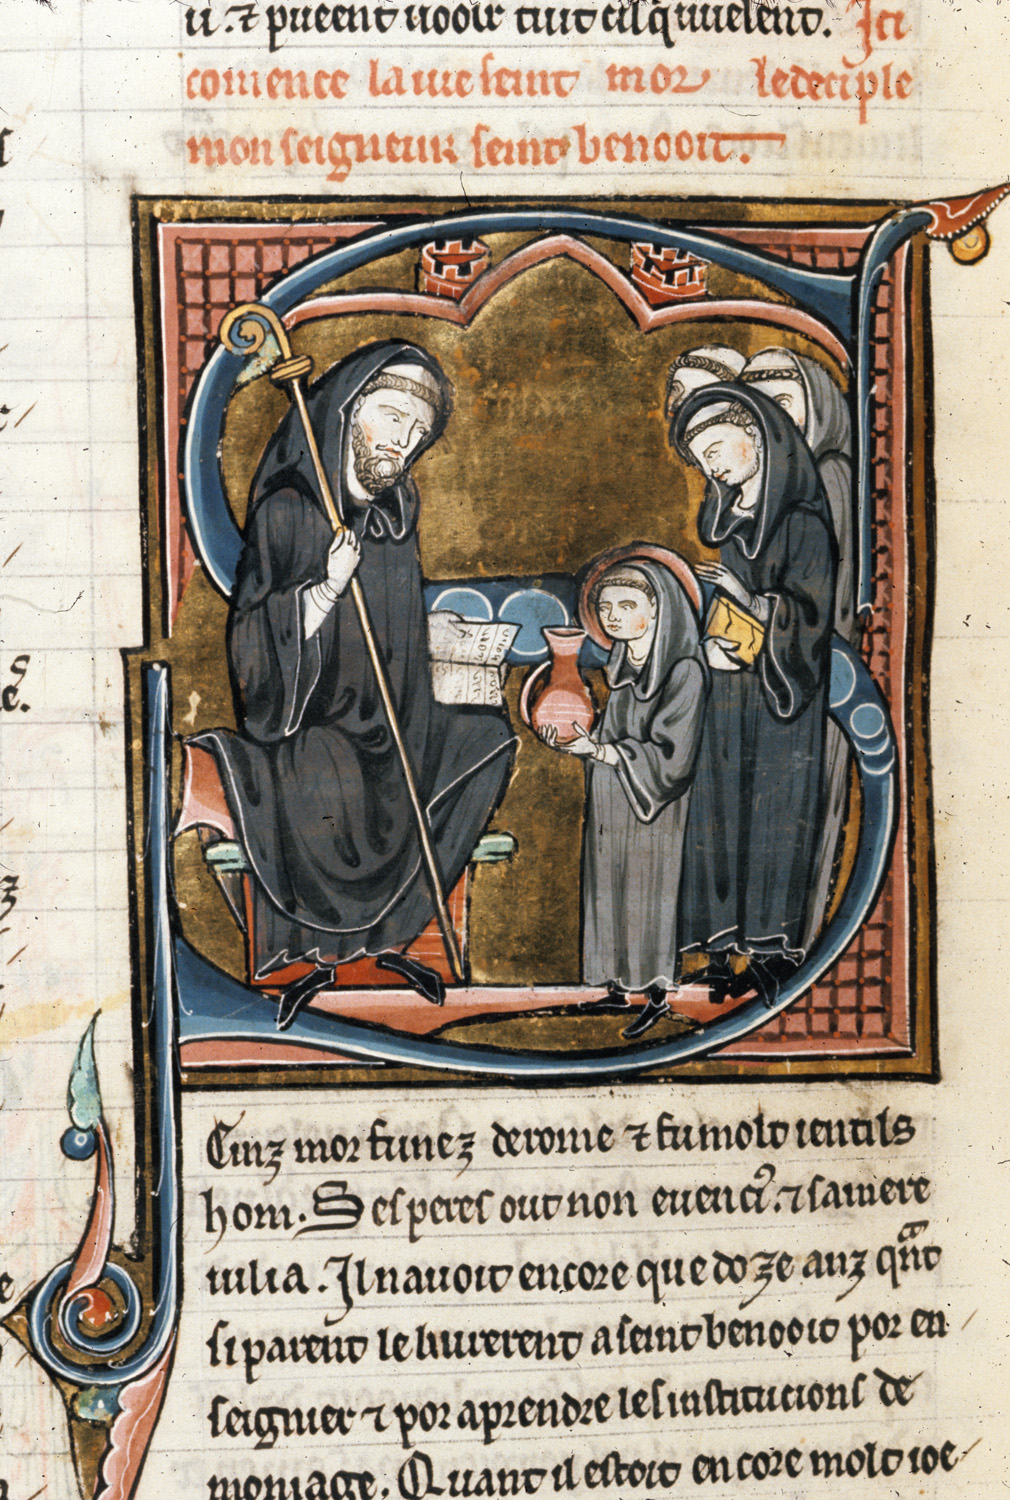 u. ⁊ pueent uooir tuit cil q̇ uuelent. Ici
comence la uie seint mor le deciple
mon seigneur seint benooit.
Einz mor fu nez de rome ⁊ fu molt ientils
hom. Ses peres out non euenci᷒. ⁊ sa mere
iulia. Il nauoit encore que doze anz qͣnt
si parent le liurerent a seint benooit por en
seignier ⁊ por aprendre les institucions de
moniage. Quant il estoit encore molt ioe